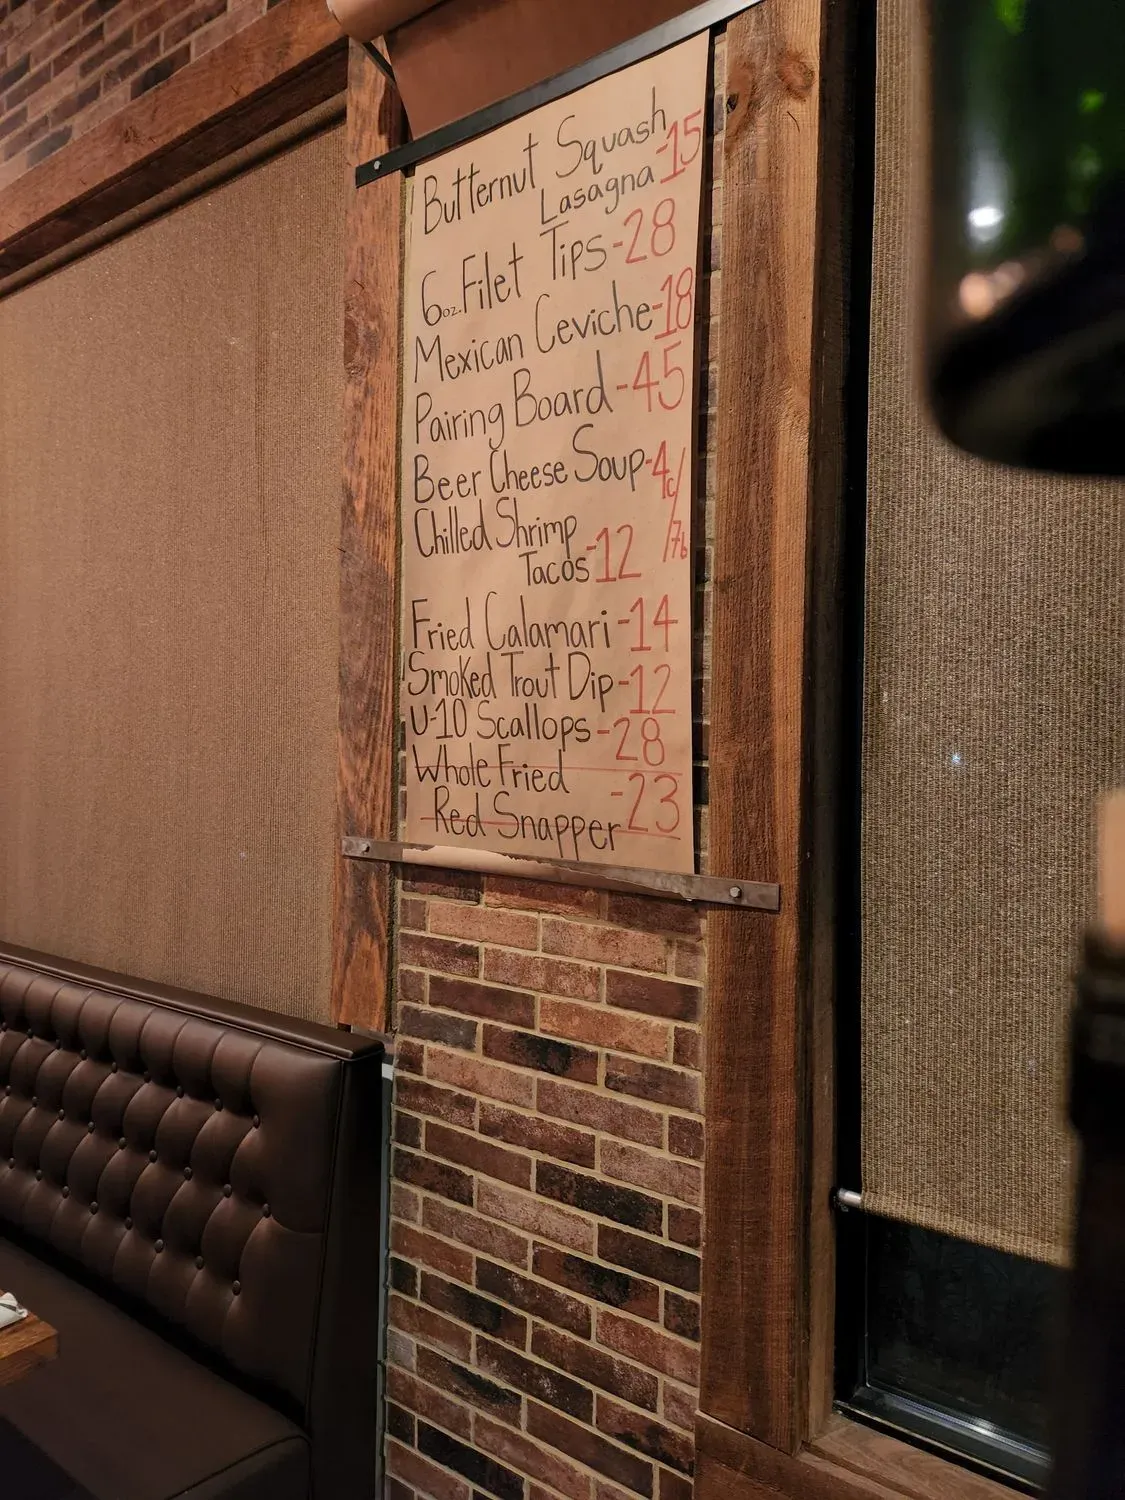 Butternut Squash
Lasagna -15
6oz. Filet Tips -28
Mexican Ceviche -18
Pairing Board -45
Beer Cheese Soup -4c/
/7b
Chilled Shrimp
Tacos -12
Fried Calamari -14
Smoked Trout Dip -12
U-10 Scallops -28
Whole Fried
Red Snapper -23